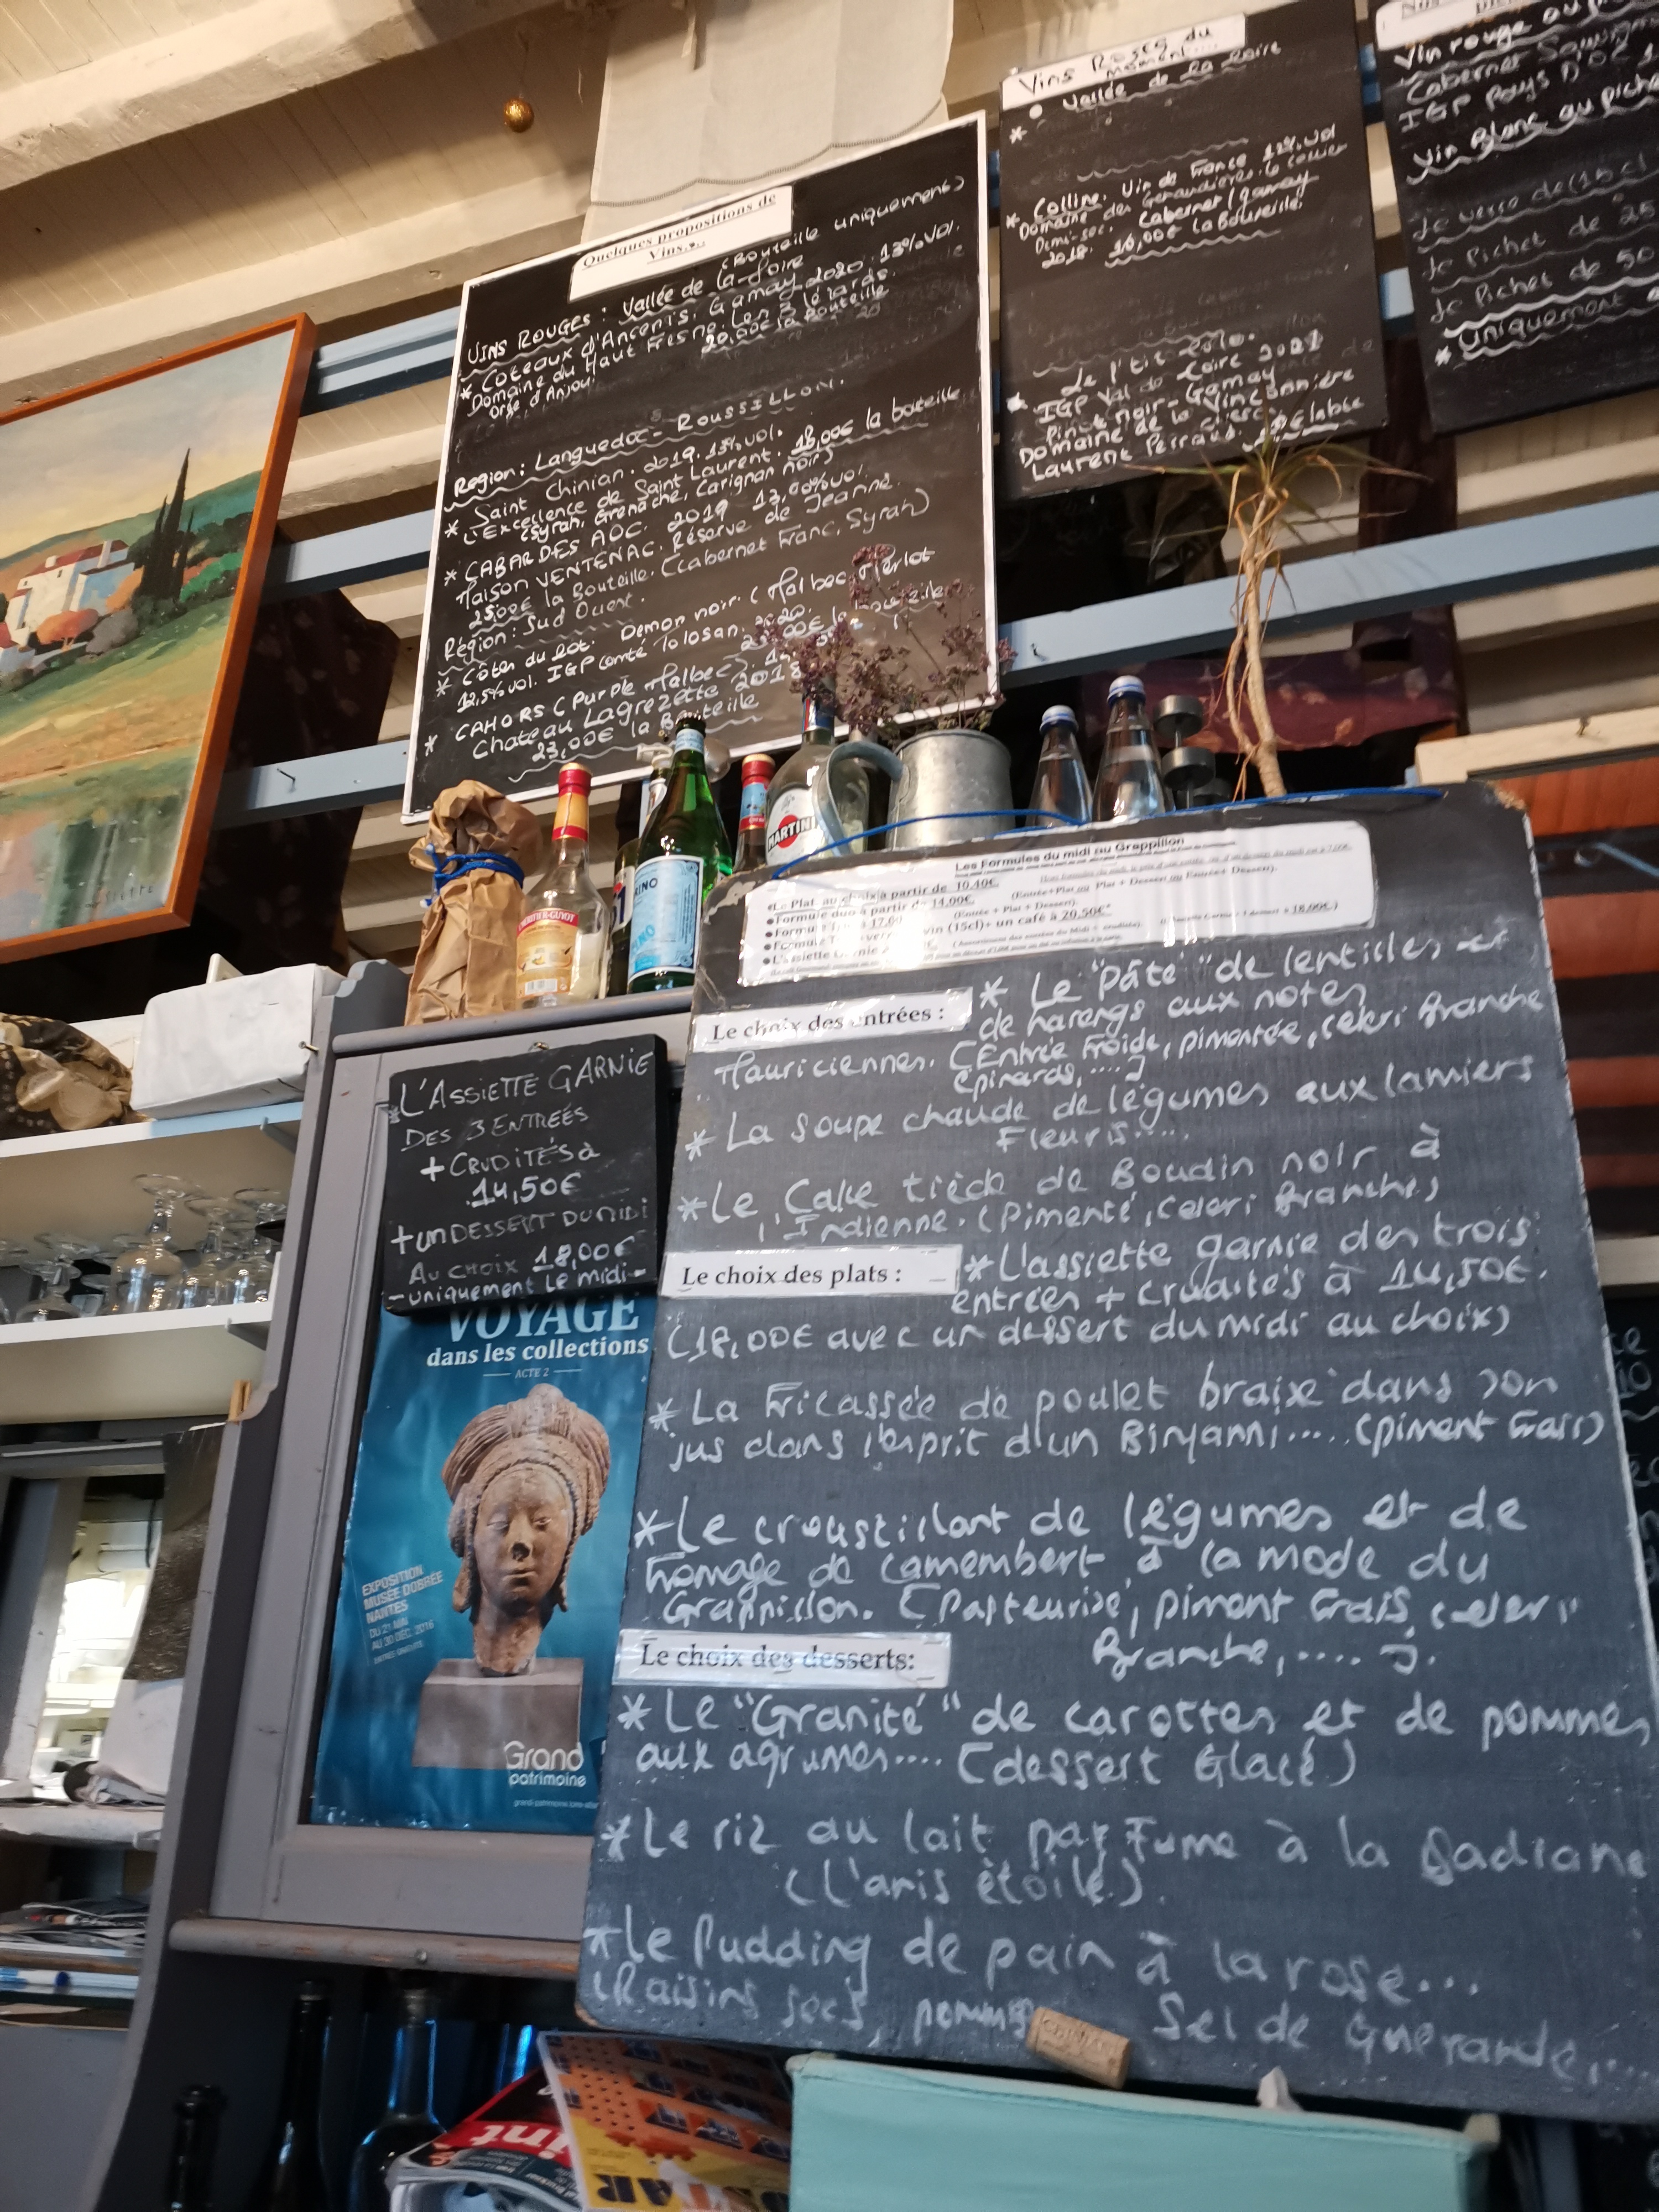 Quelques propositions de
Vins...
(Bouteille uniquement)
VINS ROUGES : Vallée de la Loire
* Coteaux d'Ancenis. Gamay 2020. 13% vol.
Domaine du Haut Fresne. Les
orge d'Anjou.
20,00€ la bouteille
Région : Languedoc - ROUSSILLON.
* Saint Chinian. 2019. 13% vol.
L'Excellence de Saint Laurent. 18,00€ la bouteille
(Syrah, Grenache, Carignan noir)
* CABARDES AOC. 2019 13,00% vol.
Maison VENTENAC. Réserve de Jeanne.
25,00€ la Bouteille. (Cabernet Franc, Syrah)
Région : Sud Ouest.
* Côtes du Lot. Demon noir. (Malbec, Merlot
12,5% vol. IGP comté Tolosan. 2020.
la Bouteille
* CAHORS (Purple Malbec).
Chateau Lagrezette 2018
23,00€ la Bouteille
Vins Rosés du
moment....
* Vallée de la Loire
* Colline. Vin de France 12% vol
Domaine des
Demi-sec. Cabernet/gamay
2018. 16,00€ la Bouteille.
Le p'tit
* IGP Val de Loire 2021
Pinot noir - Gamay
Domaine de la Vincennière
Laurent Perraud.
Nos
Vin rouge au
Cabernet
IGP Pays D'OC
Vin Blanc au piche
Le verre de (15cl
Le Pichet de 25
Le Pichet de 50
* uniquement
MARTINI
Les Formules du midi au Grappillon
Le Plat au choix à partir de 10,40€
Formule duo à partir de 14,00€. (Entrée+Plat ou Plat + Dessert ou Entrée+ Dessert).
17,60 (Entrée + Plat + Dessert).
vin (15cl)+ un café à 20,50€*
L'assiette
Le choix des entrées :
* Le "Pâté" de lentilles et
de harengs aux notes
Mauriciennes. (Entrée Froide, pimentée, celeri Branche
épinards,....)
* La soupe chaude de légumes aux lamiers
Fleuris.....
* Le Cake tiède de Boudin noir à
l'Indienne. (Pimenté, celeri Branche)
Le choix des plats :
* L'assiette garnie des trois
entrées + crudités à 14,50€.
(18,00€ avec un dessert du midi au choix)
* La Fricassée de poulet braisé dans son
jus dans l'esprit d'un Biryanni..... (piment Frais)
* Le croustillant de légumes et de
Fromage de camembert à la mode du
Grappillon. (Pasteurisé, piment Frais, celeri
Branche,....).
Le choix des desserts:
* Le "Granité" de carottes et de pommes
aux agrumes.... (dessert Glacé)
* Le riz au lait parfumé à la Badiane
(L'anis étoilé).
* Le Pudding de pain à la rose...
(Raisins secs, pommes Sel de Guérande,...
L'ASSIETTE GARNIE
DES 3 ENTREES
+ CRUDITÉS à
14,50€
+ un DESSERT DU MIDI
AU CHOIX 18,00€
- uniquement le midi -
VOYAGE
dans les collections
ACTE 2
EXPOSITION
MUSÉE DOBRÉE
NANTES
DU 21 MAI
AU 30 DÉC. 2016
Grand
patrimoine